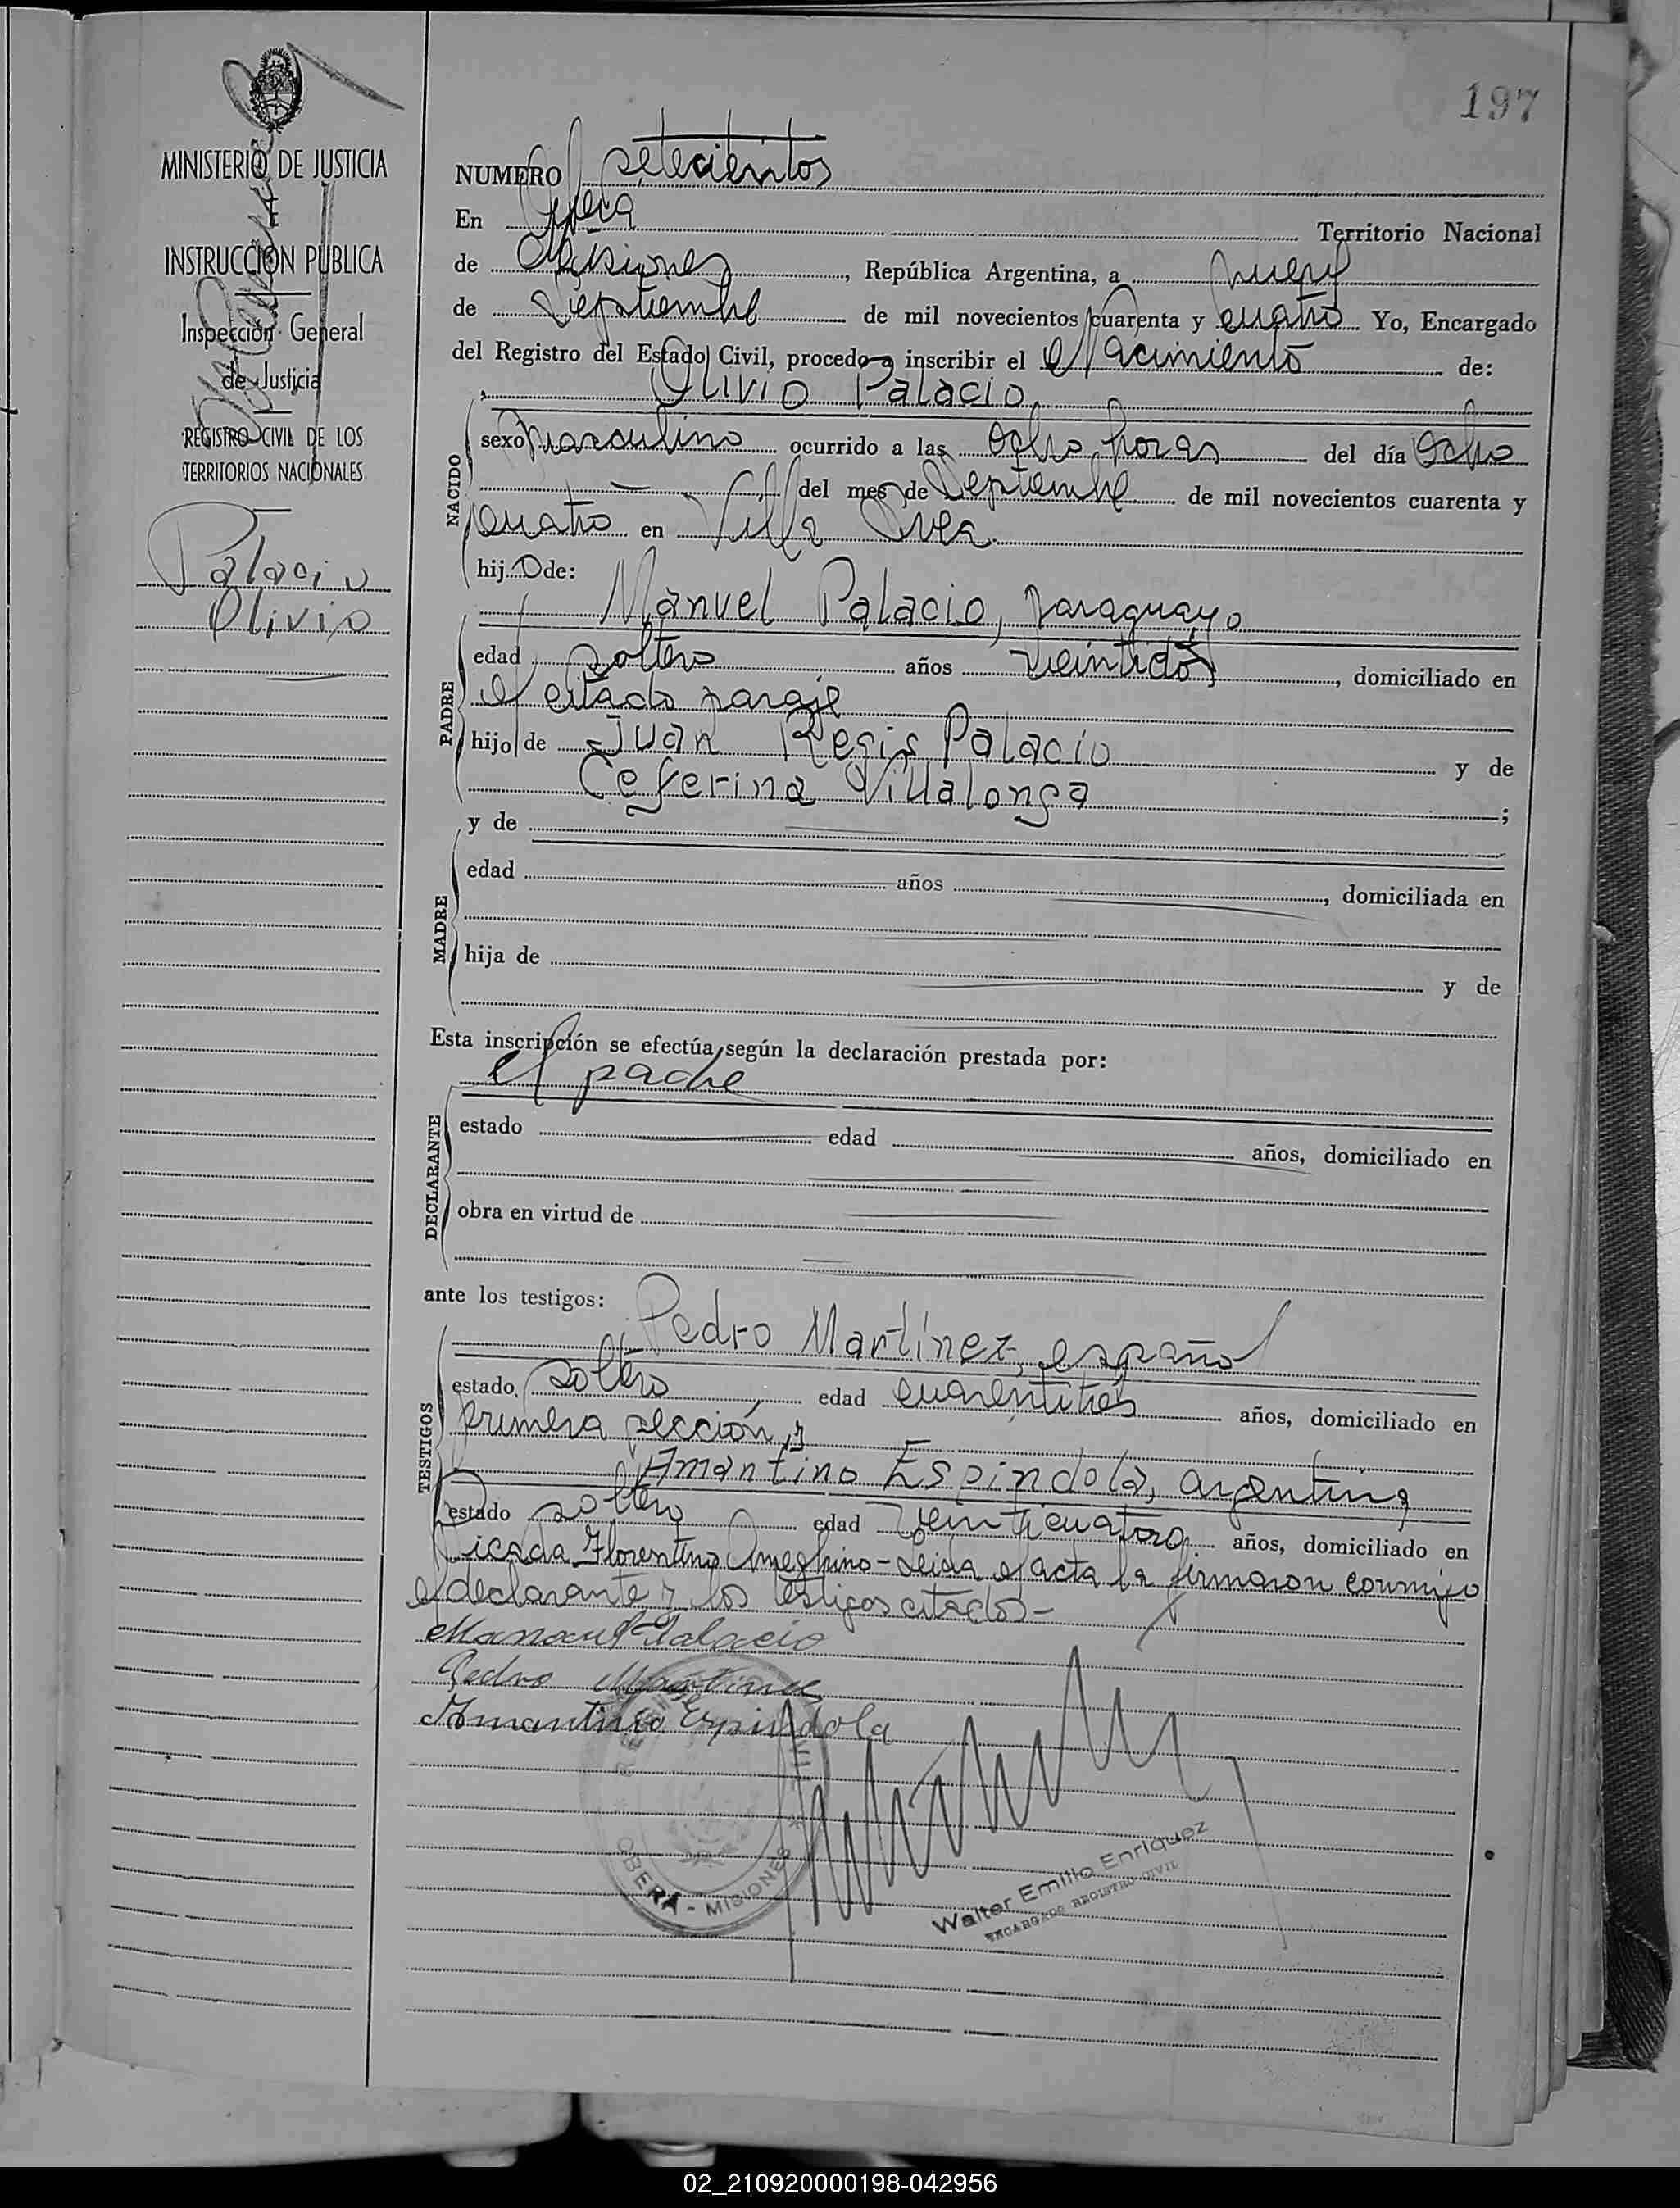 197
MINISTERIO DE JUSTICIA
E
INSTRUCCION PUBLICA
Inspección General
de Justicia
REGISTRO CIVIL DE LOS
TERRITORIOS NACIONALES
Palacio
Olivio
NUMERO setecientos
En Overá Territorio Nacional
de Misiones, República Argentina, a nueve
de Septiembre de mil novecientos cuarenta y cuatro Yo, Encargado
del Registro del Estado Civil, procedo a inscribir el Nacimiento de:
Olivio Palacio
NACIDO
sexo masculino ocurrido a las ocho horas del día ocho
del mes de Septiembre de mil novecientos cuarenta y
cuatro en Villa
hijo de:
Manuel Palacio, paraguayo
PADRE
edad soltero años veintidos, domiciliado en
el citado paraje
hijo de Juan Regis Palacio y de
Ceferina Villalonga ;
MADRE
y de
edad años , domiciliada en
hija de y de
Esta inscripción se efectúa según la declaración prestada por:
el padre
DECLARANTE
estado edad años, domiciliado en
obra en virtud de
ante los testigos:
Pedro Martinez, español
TESTIGOS
estado soltero edad cuarentitrés años, domiciliado en
primera sección y
Amantino Espindola, argentino
estado soltero edad veinticuatro años, domiciliado en
Picada Florentino Ameghino - Leida el acta la firmaron conmigo
el declarante y los testigos citados -
Manouel Palacio
Pedro Martinez
Amantino Espindola
OBERÁ - MISIONES
Walter Emilio Enriquez
ENCARGADO REGISTRO CIVIL
02_210920000198-042956